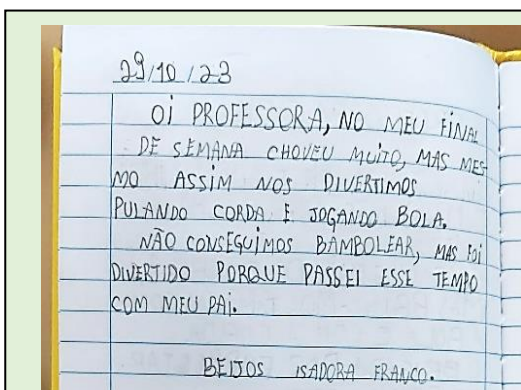 29/10/23
OI PROFESSORA, NO MEU FINAL
DE SEMANA CHOVEU MUITO, MAS MES-
MO ASSIM NOS DIVERTIMOS
PULANDO CORDA E JOGANDO BOLA.
NÃO CONSEGUIMOS BAMBOLEAR, MAS FOI
DIVERTIDO PORQUE PASSEI ESSE TEMPO
COM MEU PAI.
BEIJOS ISADORA FRANCO.